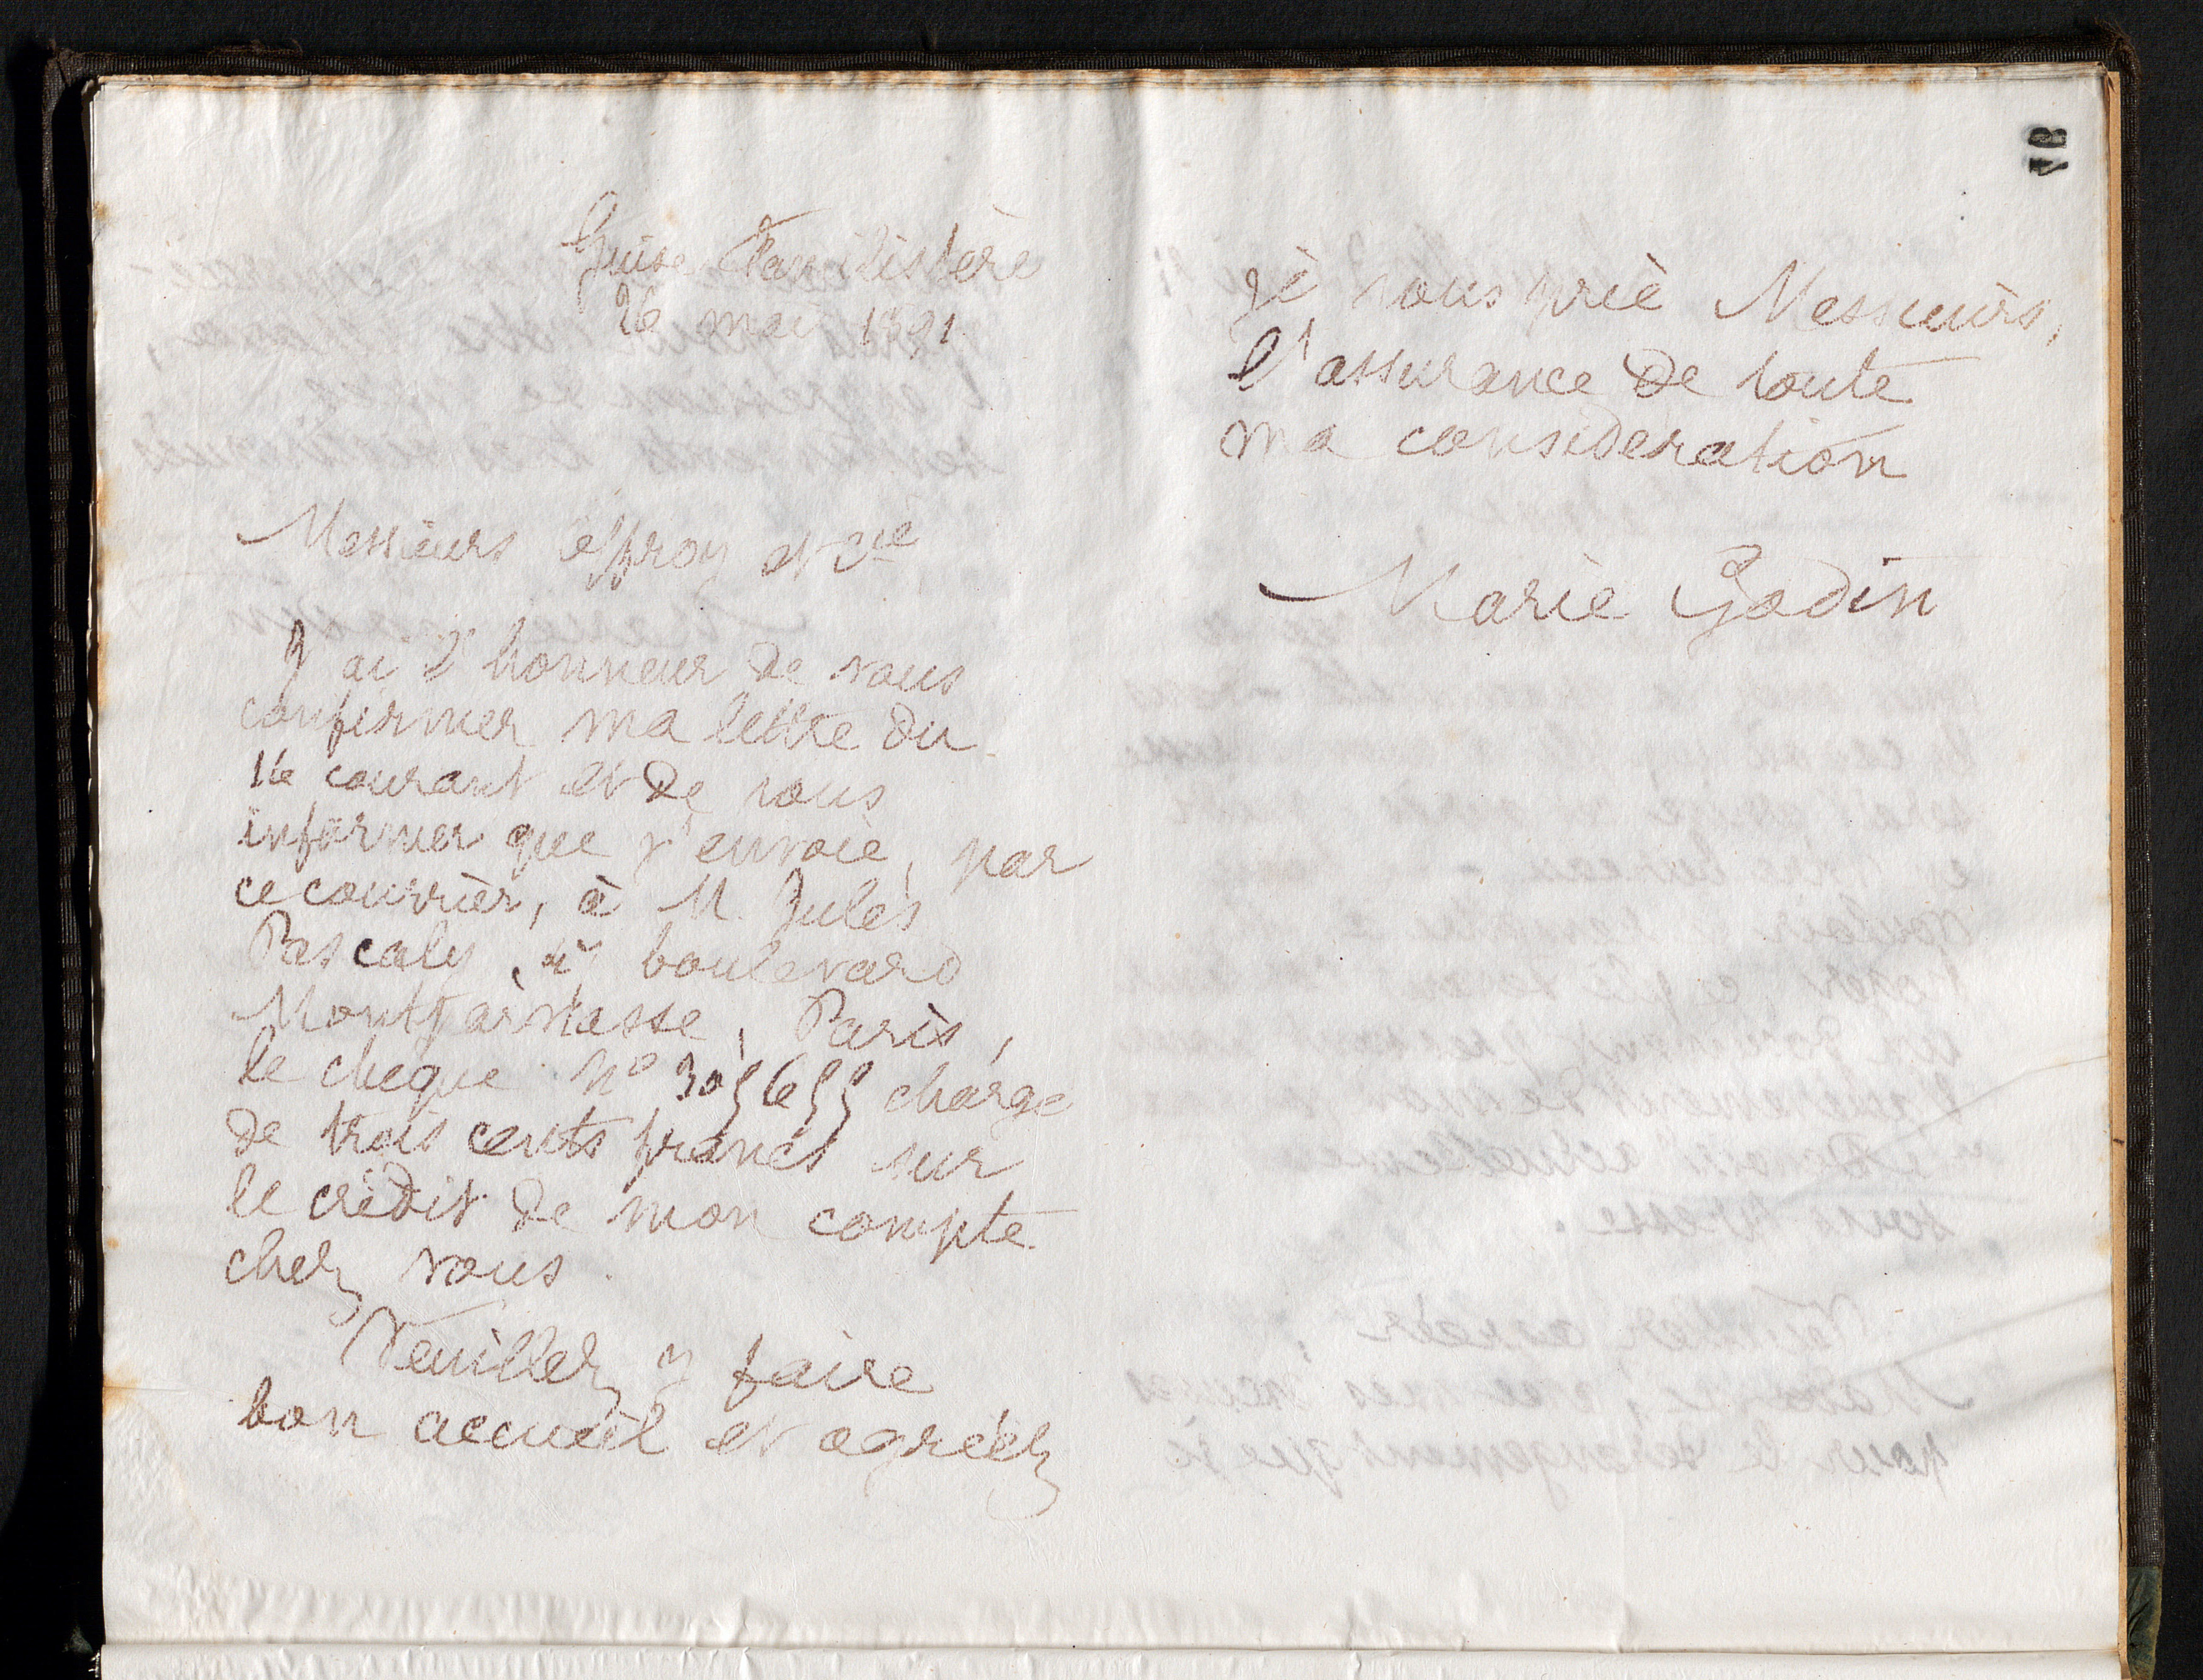 Guise Familistère
26 mai 1891.
Messieurs Effroy et Cie
J'ai l'honneur de vous
confirmer ma lettre du
16 courant et de vous
informer que j'envoie, par
ce courrier, à M. Jules
Pascaly, boulevard
Montparnasse, Paris,
le cheque n° 305655 charge
de trois cents francs sur
le crédit de mon compte
chez vous.
Veuillez y faire
bon accueil et agréez
je vous prie Messieurs,
l'assurance de toute
ma considération
Marie Godin